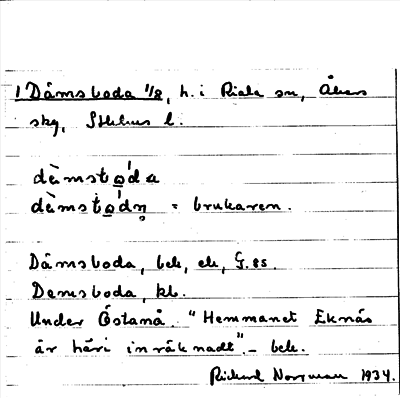 1 Dåmsboda 1/8, h. i Riala sn, Åkers
skg, Sthlms l.
dàmstǫ́da
dàmstǫ́dn̥ = brukaren.
Dåmsboda, bek, ek, G. 85.
Domsboda, kb.
Under Östanå. "Hemmanet Eknäs
är häri inräknadt". - bek.
Rickard Norrman 1934.